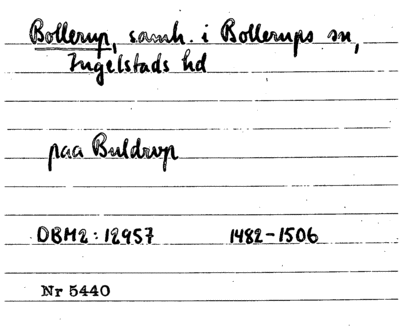 Bollerup, samh. i Bollerups sn,
Ingelstads hd
paa Buldrup
DBM2: 12957 1482-1506
Nr 5440